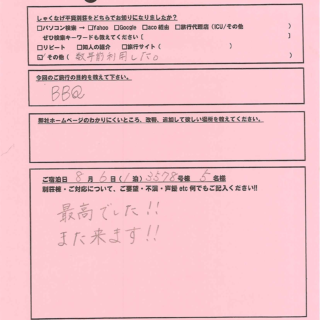 しゃくなげ平貸別荘をどちらでお知りになりましたか？
□パソコン検索 → □Yahoo □Google □aco 経由 □旅行代理店（ICU/その他 ）
ぜひ検索キーワードも教えてください［
□リピート □知人の紹介 □旅行サイト（ ）
☑ その他（ 数年前利用した。
今回のご旅行の目的を教えて下さい。
BBQ
弊社ホームページのわかりにくいところ、改善、追加して欲しい場所を教えてください。
ご宿泊日 8 月 6 日（1 泊）3378号棟 5 名様
制限棟・ご対応について、ご要望・不満・戸惑 etc 何でもご記入ください!!
最高でした!!
また来ます!!